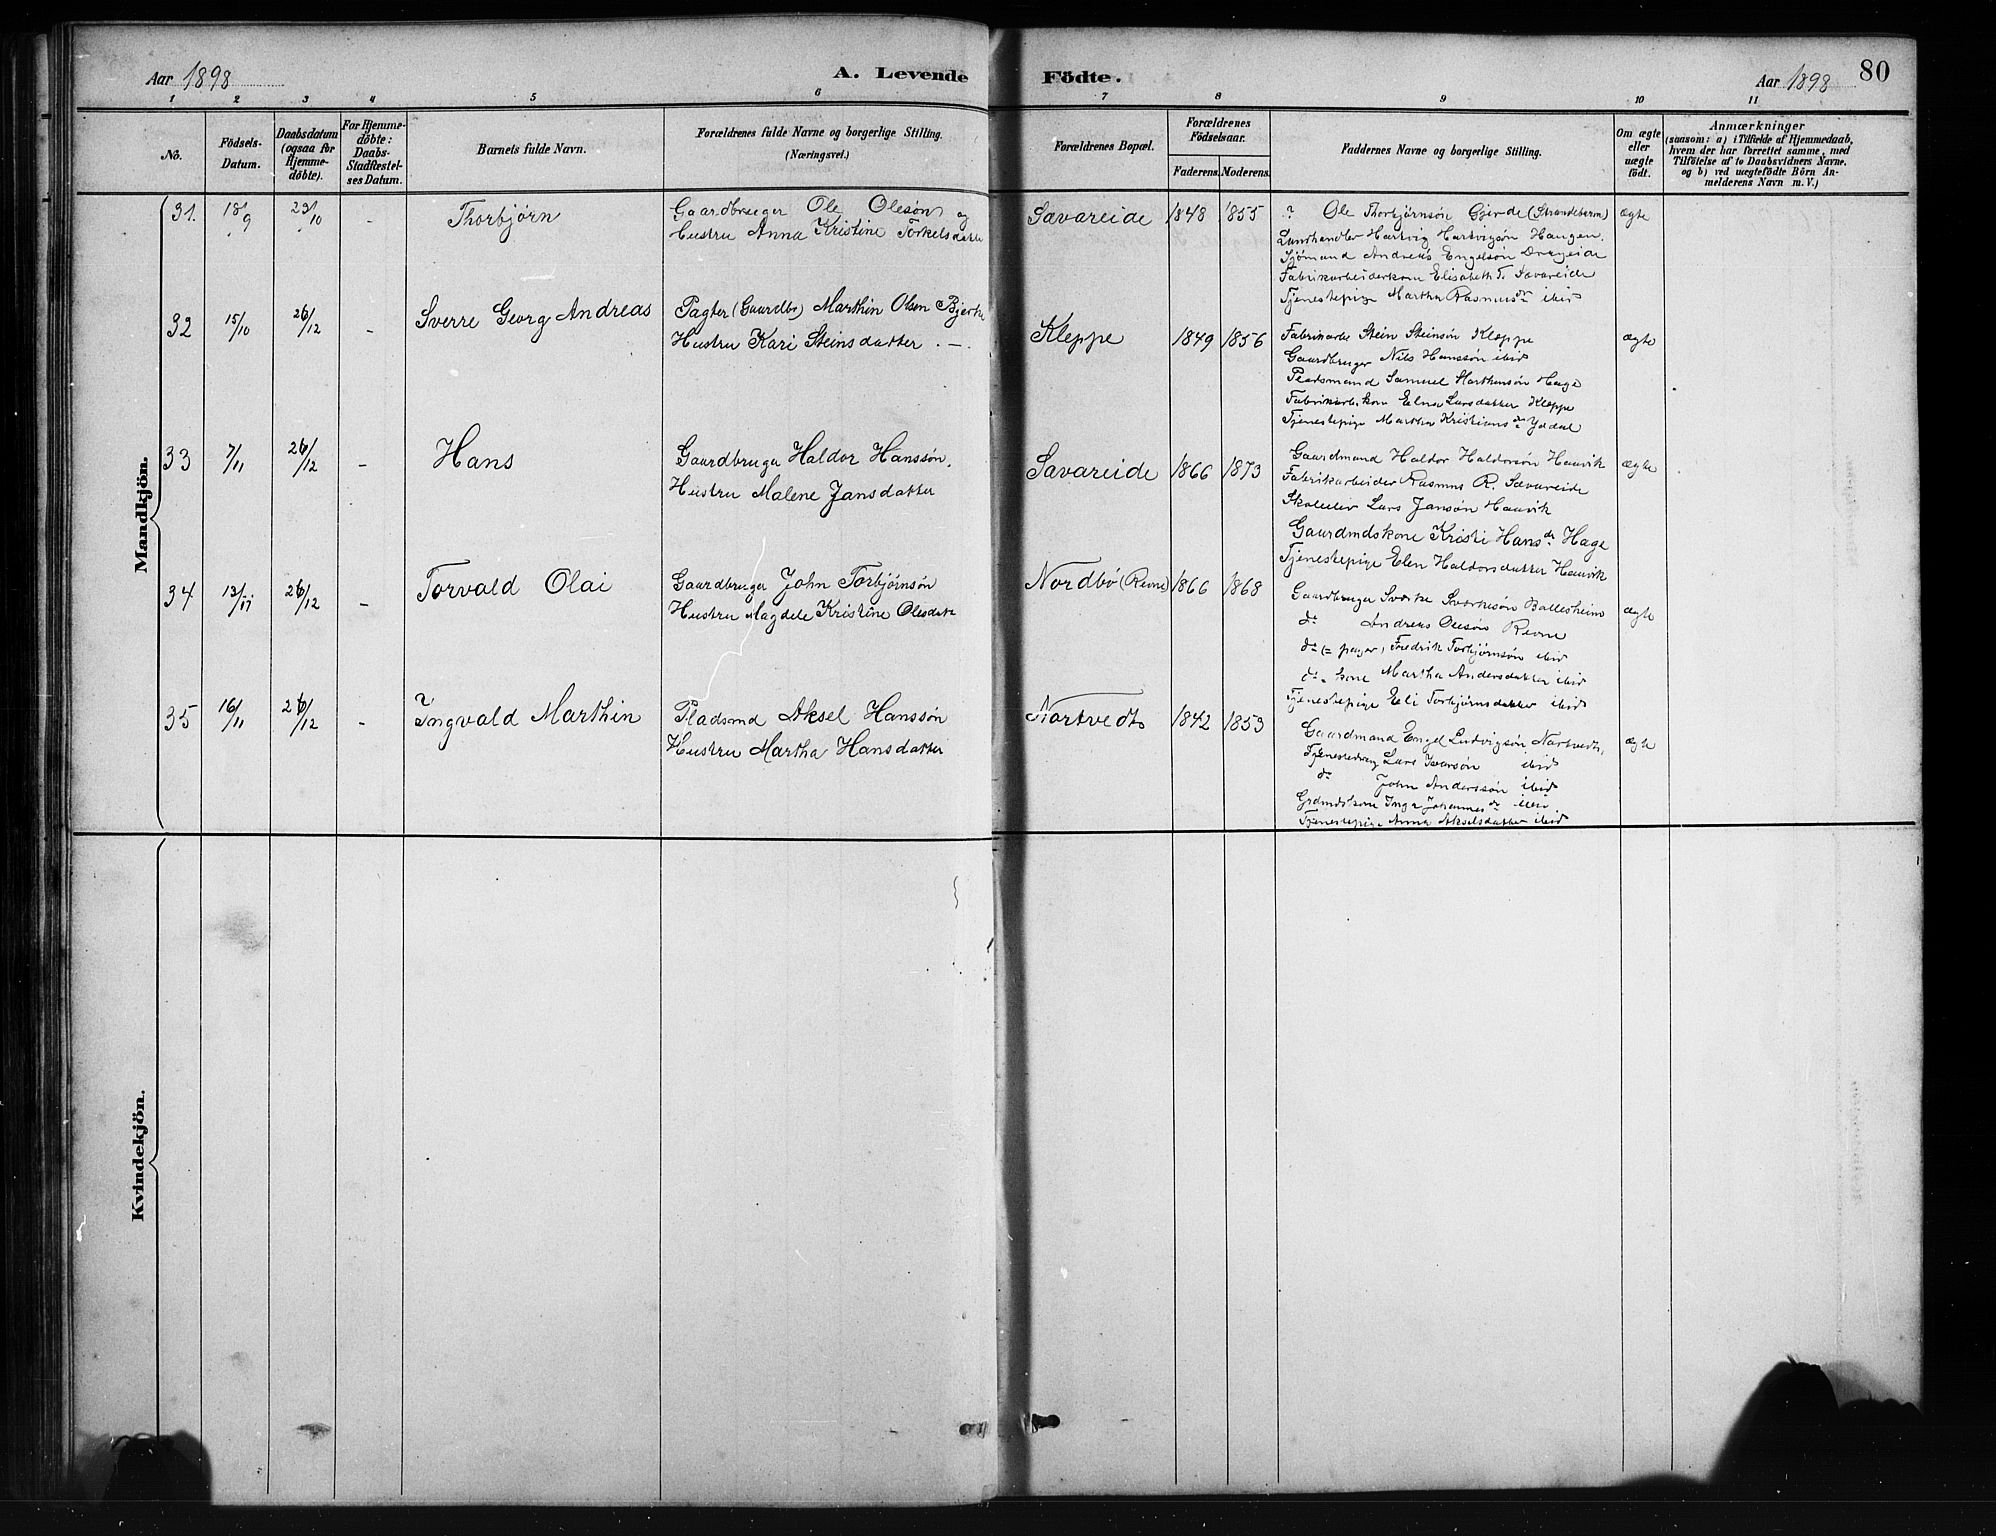 Aar 1898
A. Levende
Födte.
Aar 1898
80
1 2 3 4 5 6 7 8 9 10 11
No.
Födsels-
Datum.
Daabsdatum
(ogsaa for
Hjemme-
döbte).
For Hjemme-
döbte:
Daabs-
Stadfæstel-
ses Datum.
Barnets fulde Navn.
Forældrenes fulde Navne og borgerlige Stilling.
(Næringsvei.)
Forældrenes Bopæl.
Forældrenes
Födselsaar.
Faderens. Moderens.
Faddernes Navne og borgerlige Stilling.
Om ægte
eller
uægte
födt.
Anmærkninger
(saasom: a) i Tilfælde af Hjemmedaab,
hvem der har forrettet samme, med
Tilföielse af to Daabsvidners Navne,
og b) ved uægtefödte Börn An-
melderens Navn m. V.)
Mandkjön.
31. 18/9 23/10 - Thorbjørn
Gaardbruger Ole Olesøn og
Hustru Anna Kristine Torkelsdatter
Sævareide 1848 1855
? Ole Thorbjørnsøn Gjerde (Strandebarm)
Landhandler Hartvig Hartvigsøn Haugen.
Sjømand Andreas Engelsøn
Fabrikarbeiderkone Elisabeth T. Sævareide
Tjenestepige Martha Rasmusdr ibid
ægte
32 15/10 26/12 - Sverre Georg Andreas
Pagter (Gaardbr) Marthin Olsen
Hustru Kari Steinsdatter - -
Kleppe 1849 1856
Fabrikarb. Stein Steinsøn Kleppe
Gaardbruger Nils Hanssøn ibid
Pladsmand Samuel Marthinsøn Hage
Fabrikarb.kone Elna Larsdatter Kleppe
Tjenestepige Martha Kristiansdr Yddal
ægte
33 7/11 26/12 - Hans
Gaardbruger Haldor Hanssøn,
Hustru Malene Jansdatter
Sævareide 1866 1873
Gaardmand Haldor Haldorsøn Haavik
Fabrikarbeider Rasmus R. Sævareide
Skoleelev Lars Jansøn Haavik
Gaardmdskone Kristi Hansdr Hage
Tjenestepige Elen Haldorsdatter Haavik
ægte
34 13/11 26/12 - Torvald Olai
Gaardbruger John Torbjørnsøn
Hustru Magdele Kristine Olesdatr
Nordbø (Revne) 1866 1868
Gaardbruger Sverke Sverkesøn Ballesheim
do Andreas Olesøn Revne
do Fredrik Torbjørnsøn ibid
do kone Martha Andersdatter ibid
Tjenestepige Eli Torbjørnsdatter ibid
ægte
35 16/11 26/12 - Ingvald Marthin
Pladsmd Aksel Hanssøn
Hustru Martha Hansdatter
Nortvedt 1842 1853
Gaardmand Engel Ludvigsøn Nortvedt,
Tjenestedreng Lars Ivarsøn ibid
do John Anderssøn ibid
Grdmdskone Inga Johannesdr ibid.
Tjenestepige Anna Akselsdatter ibid
ægte
Kvindekjön.